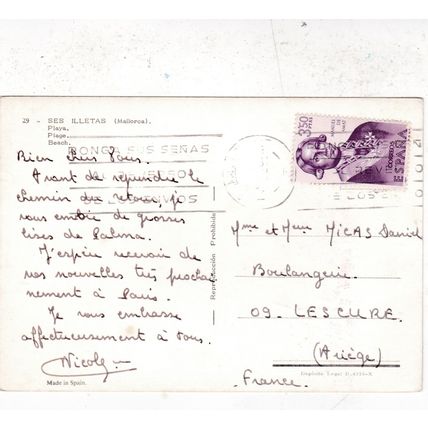 29 - SES ILLETAS (Mallorca).
Playa.
Plage.
Beach.
PONGA SUS SEÑAS
Bien chers Tous.
Avant de rejoindre le
chemin du retour, je
vous envoie de grosses
bises de Palma.
J'espère recevoir de
vos nouvelles très prochai
nement à Paris.
Je vous embrasse
affectueusement à tous.
Nicole
Made in Spain.
Reproducción Prohibida
3,50
PTAS
MANUEL
DE
AMAT
correos
ESPAÑA
Mme et Mmm MICAS Daniel
Boulangerie.
09. LESCURE.
(Ariège)
France.
Depósito Legal B.